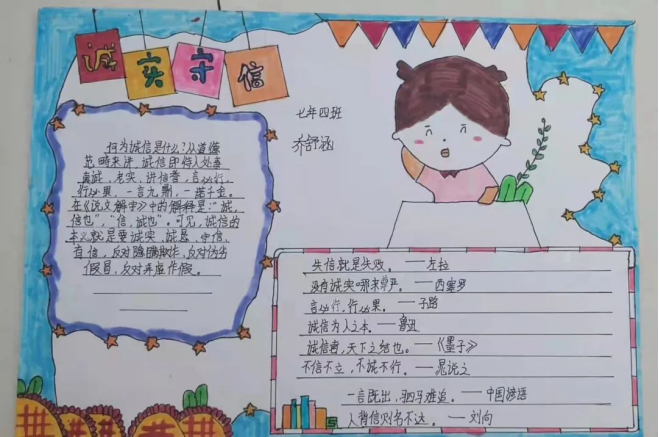 诚实守信
七年四班
乔舒涵
何为诚信是什么?从道德
范畴来讲,诚信即待人处事
真诚、老实、讲信誉,言必行、
行必果,一言九鼎,一诺千金。
在《说文解字》中的解释是:“诚,
信也”,“信,诚也”。可见,诚信的
本义就是要诚实、诚恳、守信、
有信,反对隐瞒欺诈、反对伪劣
假冒,反对弄虚作假。
失信就是失败。——左拉
没有诚实哪来尊严。——西塞罗
言必行,行必果。——子路
诚信为人之本。——鲁迅
诚信者,天下之结也。——《墨子》
不信不立,不诚不行。——晁说之
一言既出,驷马难追。——中国谚语
人背信则名不达。——刘向